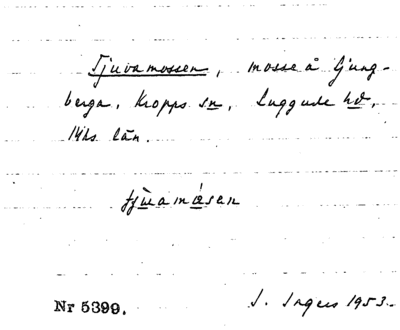 Tjuvamossen, mosse å Ljung-
berga, Kropps sn, Luggude hd,
Mhs län.
Nr 5399. I. Ingers 1953.